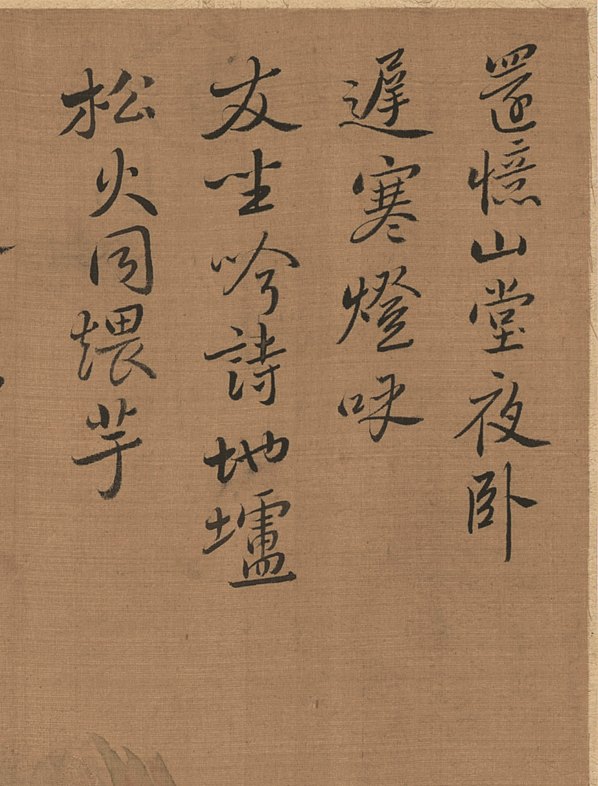 還憶山堂夜卧
遲寒燈呼
友坐吟詩地壚
松火同煨芋